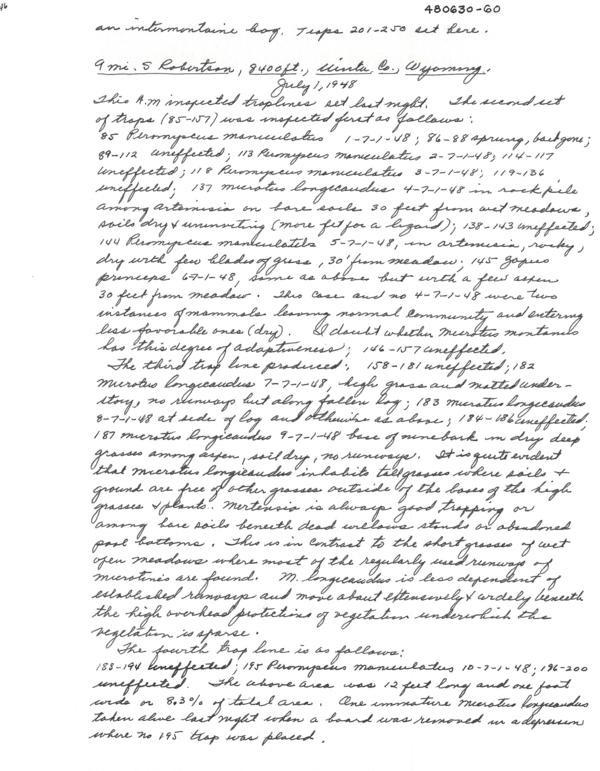 480630-60
an intermontaine bog. Traps 201-250 set here.
9 mi. S Robertson, 8400 ft., Uinta, Co., Wyoming.
July 1, 1948
This A.M inspected traplines set last night. The second set
of traps (85-157) was inspected first as follows:
85 Peromyscus maniculatus 1-7-1-48; 86-88 sprung, bait gone;
89-112 uneffected; 113 Peromyscus maniculatus 2-7-1-48; 114-117
uneffected; 118 Peromyscus maniculatus 3-7-1-48; 119-136
uneffected; 137 microtus longicaudus 4-7-1-48 in rock pile
among artemisia on bare soils 30 feet from wet meadows,
soils dry & uninviting (more fit for a lizard); 138-143 uneffected;
144 Peromyscus maniculatus 5-7-1-48, in artemisia, rocky,
dry with few blades of grass, 30' from meadow; 145 Zapus
princeps 6-7-1-48, same as above but with a few aspen
30 feet from meadow. This case and no 4-7-1-48 were two
instances of mammals leaving normal community and entering
less favorable ones (dry). I doubt whether Microtus montanus
has this degree of adaptiveness; 146-157 uneffected.
The third trap line produced: 158-181 uneffected; 182
Microtus longicaudus 7-7-1-48, high grass and matted under-
story, no runways but along fallen log; 183 microtus longicaudus
8-7-1-48 at side of log and otherwise as above; 184-186 uneffected;
187 microtus longicaudus 9-7-1-48 base of ninebark in dry deep
grasses among aspen, soil dry, no runways. It is quite evident
that microtus longicaudus inhabits tall grasses where soils &
ground are free of other grasses outside of the bases of the high
grasses & plants. Mertensia is always good trapping or
among bare soils beneath dead willows stands or abandoned
pool bottoms. This is in contrast to the short grasses of wet
open meadows where most of the regularly used runways of
microtines are found. M. longicaudus is less dependent of
established runways and move about extensively & widely beneath
the high overhead protections of vegetation underwhich the
vegetation is sparse.
The fourth trap line is as follows:
188-194 uneffected; 195 Peromyscus maniculatus 10-7-1-48; 196-200
uneffected. The above area was 12 feet long and one foot
wide or 8.3% of total area. One immature microtus longicaudus
taken alive last night when a board was removed in a depression
where no 195 trap was placed.